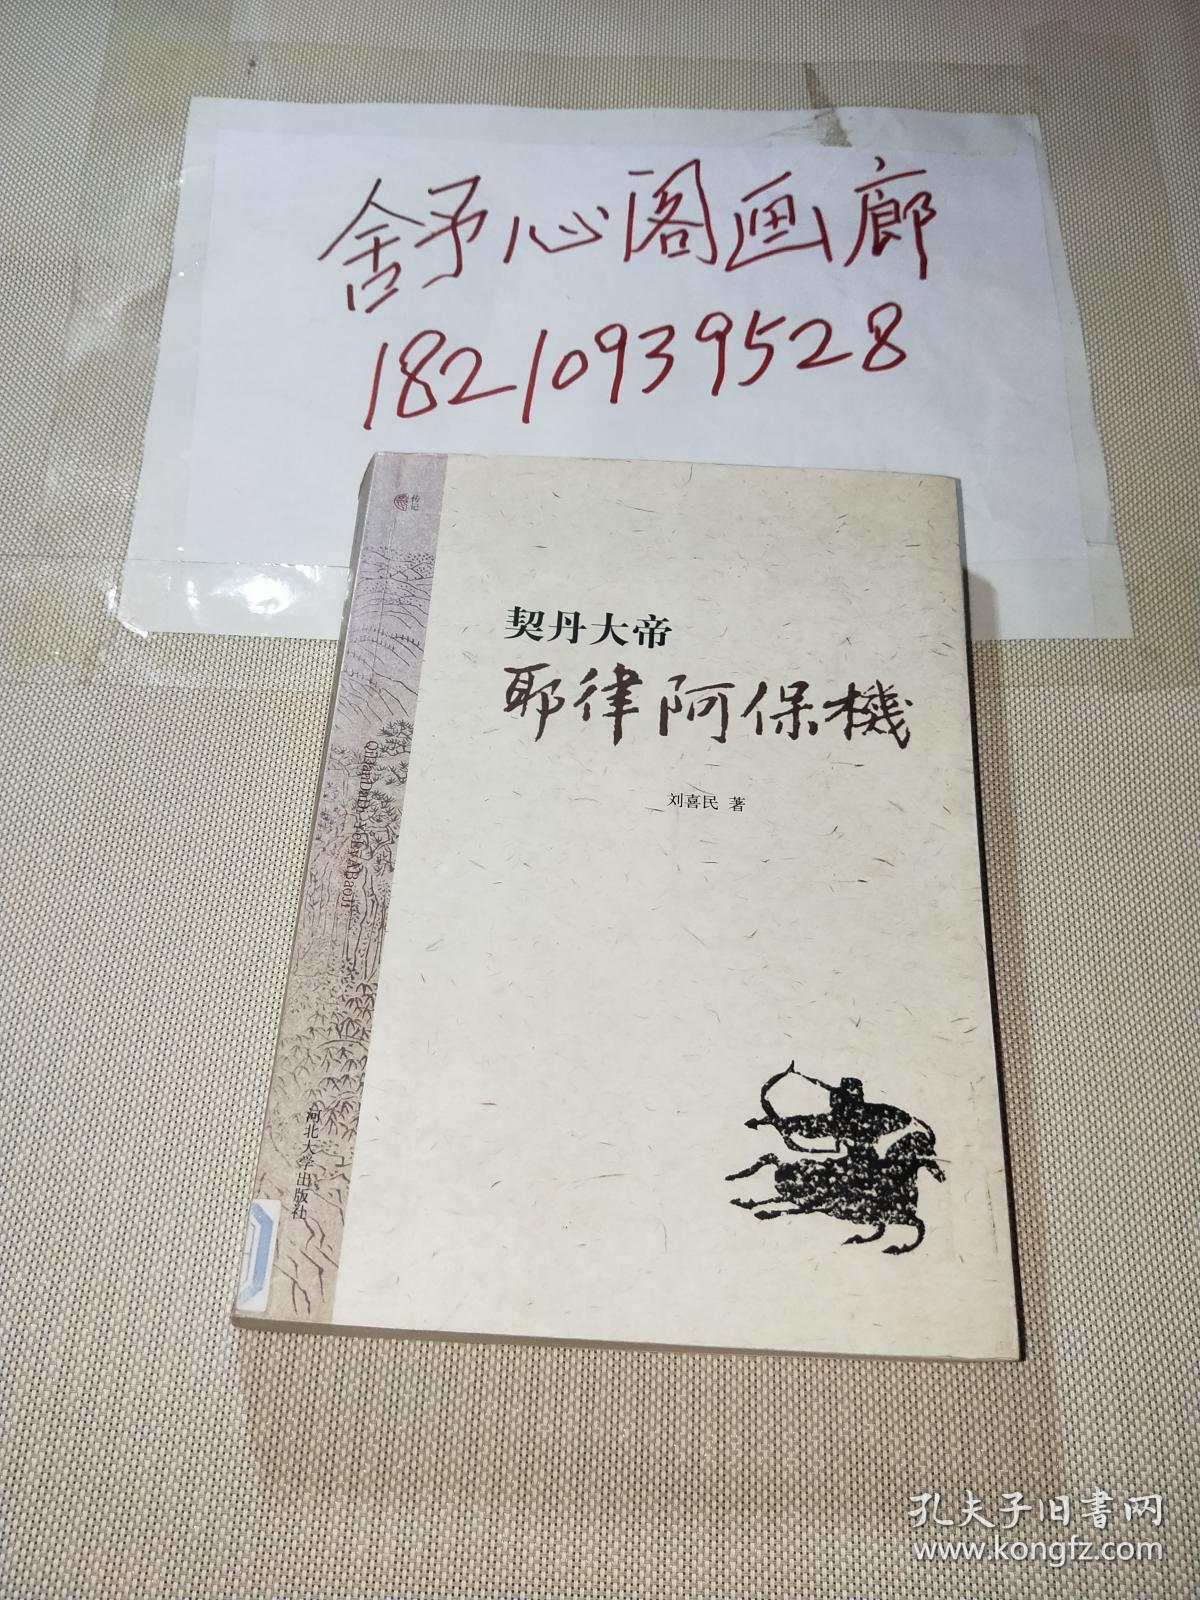 舒心阁画廊
18210939528
传记
契丹大帝
耶律阿保機
刘喜民 著
QiDanDaDi YeLvABaoJi
河北大学出版社
孔夫子旧書网
www.kongfz.com